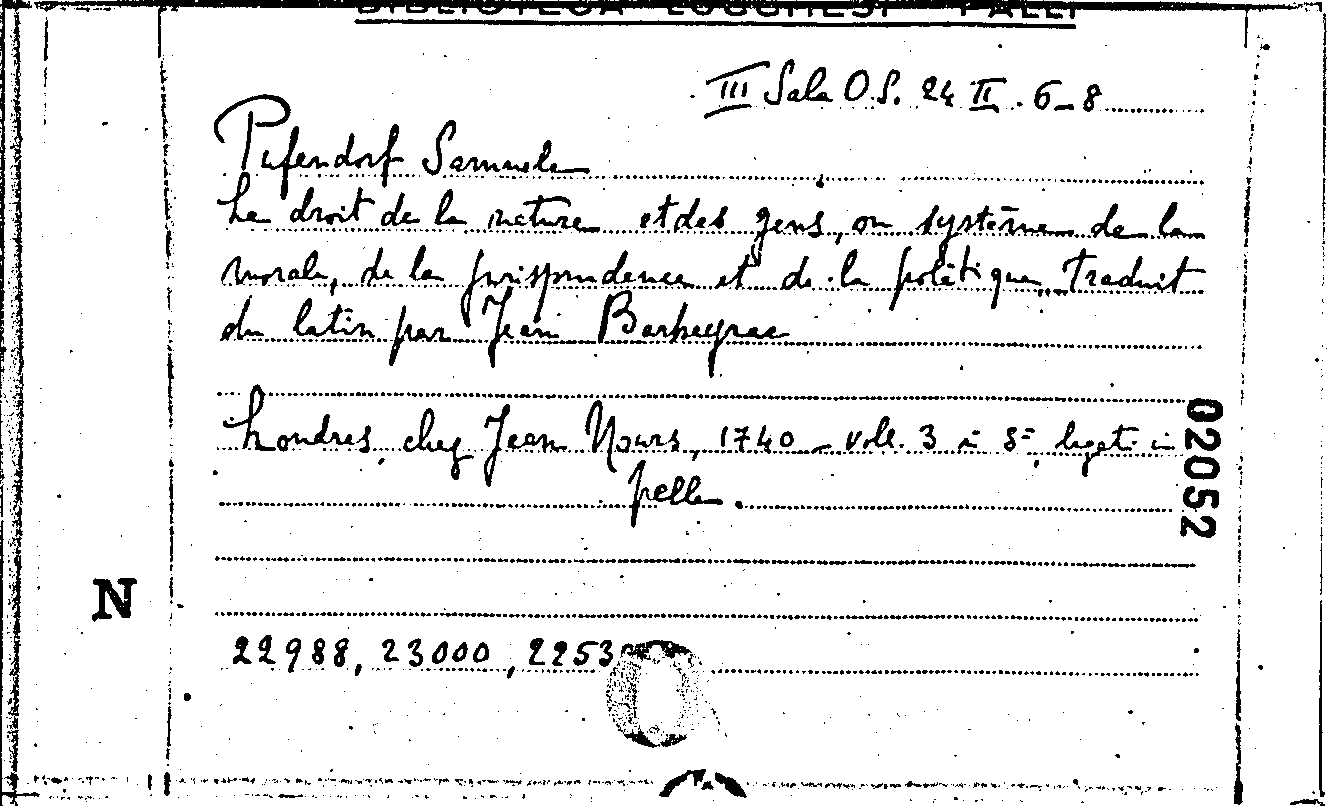 BIBLIOTECA LUCCHESI - PALLI
III Sala O.S. 24 II. 6-8
Pufendorf Samuele
Le droit de la nature et des gens, ou système de la
morale, de la jurisprudence et de la politique, traduit
du latin par Jean Barbeyrac
Londres, chez Jean Nours, 1740 - voll. 3 in 8º, legati in
pelle.
02052
N
22988, 23000, 2253